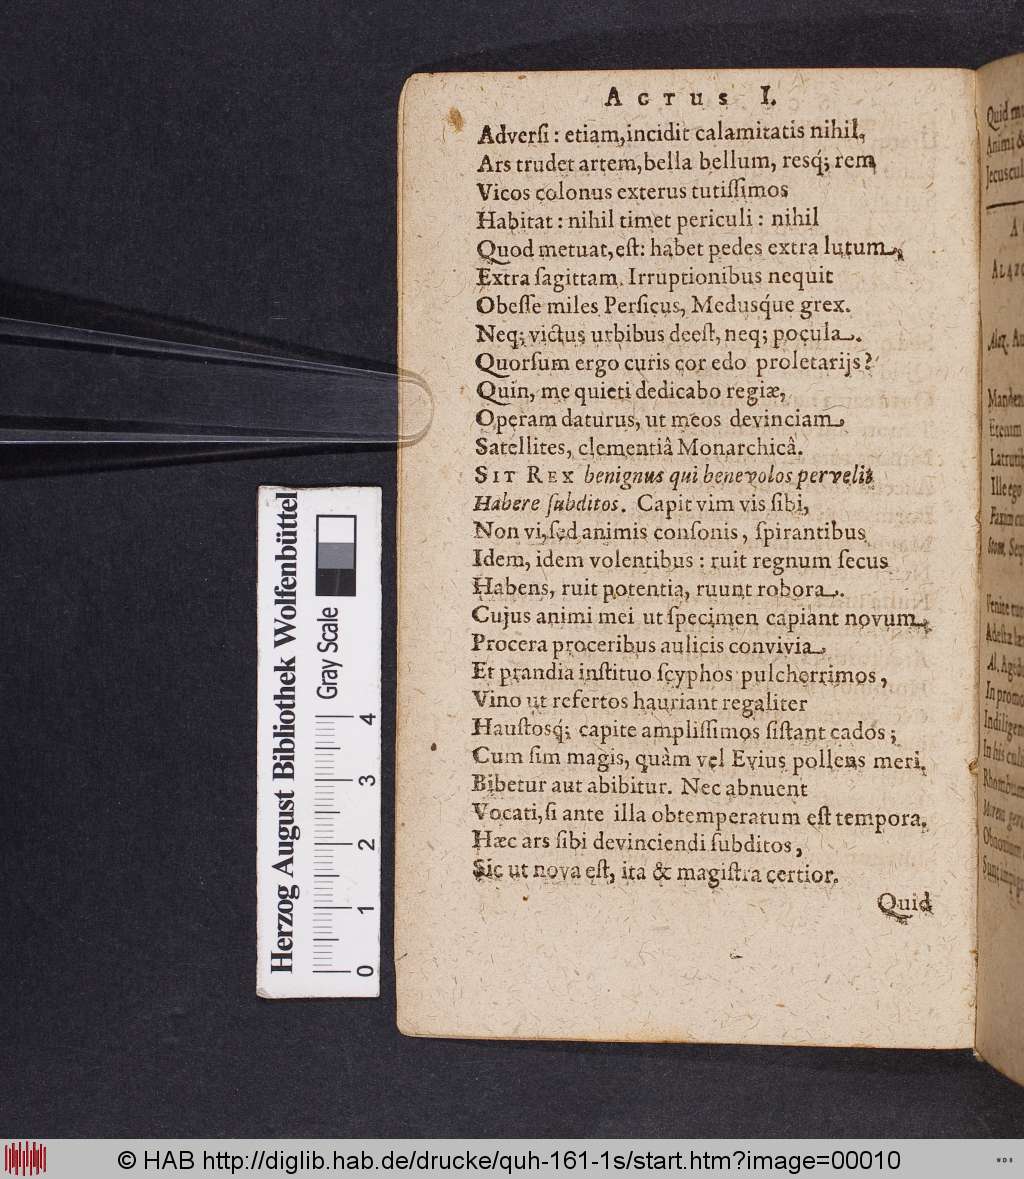 ACTUS I.
Adversi : etiam, incidit calamitatis nihil,
Ars trudet artem, bella bellum, resq́; rem,
Vicos colonus exterus tutiſſimos
Habitat : nihil timet periculi : nihil
Quod metuat, eſt: habet pedes extra lutum,
Extra ſagittam. Irruptionibus nequit
Obeſſe miles Perſicus, Medusq́ue grex.
Neq; victus urbibus deeſt, neq; pocula.
Quorſum ergo curis cor edo proletarijs?
Quin, me quieti dedicabo regiæ,
Operam daturus, ut meos devinciam
Satellites, clementiâ Monarchicâ.
SIT REX benignus qui benevolos pervelit
Habere ſubditos. Capit vim vis ſibi,
Non vi, ſed animis conſonis, ſpirantibus
Idem, idem volentibus : ruit regnum ſecus
Habens, ruit potentia, ruunt robora.
Cujus animi mei ut ſpecimen capiant novum,
Procera proceribus aulicis convivia
Et prandia inſtituo ſcyphos pulcherrimos,
Vino ut refertos hauriant regaliter
Hauſtosq́; capite ampliſſimos ſiſtant cados ;
Cum ſim magis, quàm vel Evius pollens meri.
Bibetur aut abibitur. Nec abnuent
Vocati, ſi ante illa obtemperatum eſt tempora.
Hæc ars ſibi devinciendi ſubditos,
Sic ut nova eſt, ita & magiſtra certior.
Quid
Herzog August Bibliothek Wolfenbüttel
Gray Scale
0 1 2 3 4
© HAB http://diglib.hab.de/drucke/quh-161-1s/start.htm?image=00010